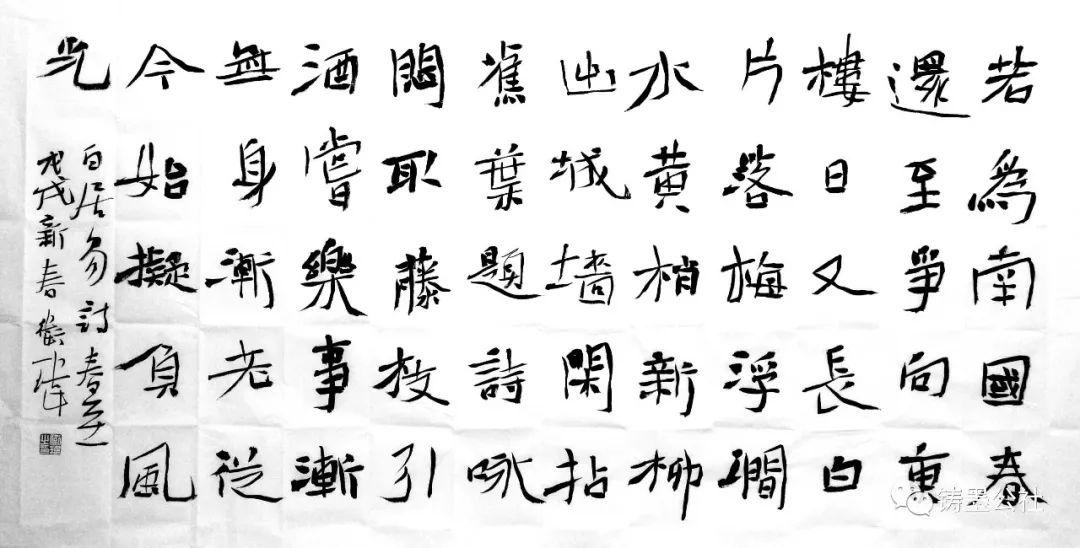 若為南國春
還至爭向東
樓日又長白
片落梅浮澗
水黃梢新柳
出城墻閑拈
蕉葉題詩咏
悶取藤枝引
酒嘗樂事漸
無身漸老從
今始擬負風
光
白居易詩春至
戊戌新春
铸墨公社